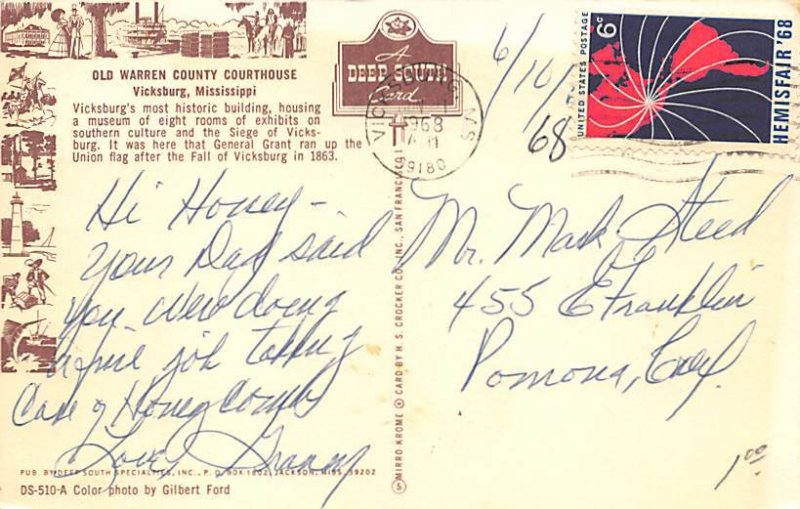 OLD WARREN COUNTY COURTHOUSE
Vicksburg, Mississippi
Vicksburg's most historic building, housing
a museum of eight rooms of exhibits on
southern culture and the Siege of Vicks-
burg. It was here that General Grant ran up the
Union flag after the Fall of Vicksburg in 1863.
A
DEEP SOUTH
Card
VICKSBURG
1968
39180
6/10/
68
6c
UNITED STATES POSTAGE
HEMISFAIR '68
Hi Honey -
Your Dad said
you were doing
a fine job taking
Care of Honeycomb
Love, Granny
Mr. Mark Steed
455 E Franklin
Pomona, Calif.
1.00
MIRRO KROME CARD BY H. S. CROCKER CO. INC., SAN FRANCISCO 1
5
PUB. BY DEEP SOUTH SPECIALTIES, INC., P. O. BOX 1802, JACKSON, MISS. 39202
DS-510-A Color photo by Gilbert Ford